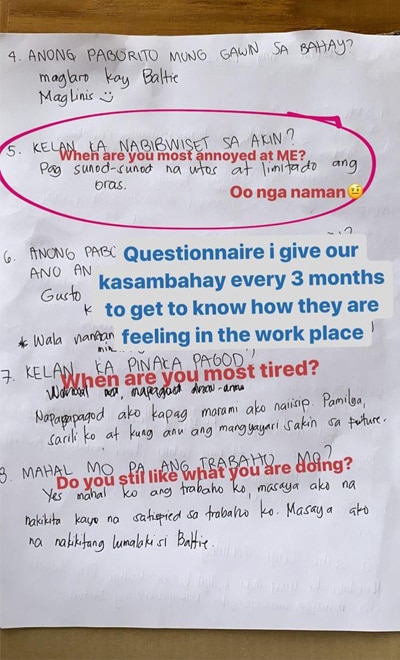 4. ANONG PABORITO MUNG GAWIN SA BAHAY?
maglaro kay Baltie
Maglinis
5. KELAN KA NABIBWISET SA AKIN?
When are you most annoyed at ME?
Pag sunod-sunod na utos at limitado ang
oras.
Oo nga naman
6. ANONG PABO
ANO AN
Gusto
k
* Wala naman
Questionnaire i give our
kasambahay every 3 months
to get to know how they are
feeling in the work place
7. KELAN KA PINAKA PAGOD?
When are you most tired?
Napapapagod ako kapag marami ako naiisip. Pamilya,
sarili ko at kung anu ang mangyayari sakin sa future.
8. MAHAL MO PA ANG TRABAHO MO?
Do you still like what you are doing?
Yes mahal ko ang trabaho ko, masaya ako na
nakikita kayo na satispied sa trabaho ko. Masaya ako
na nakikitang lumalaki si Baltie.